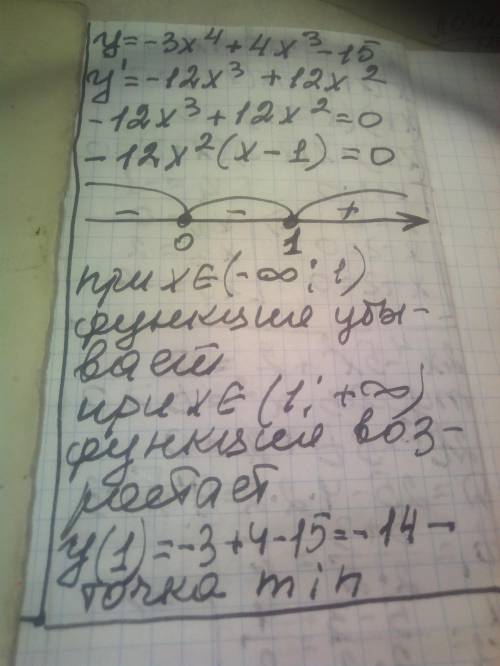 y = -3x⁴ + 4x³ - 15
y' = -12x³ + 12x²
-12x³ + 12x² = 0
-12x²(x - 1) = 0
- - +
0 1
при x ∈ (-∞; 1)
функция убы-
вает
при x ∈ (1; +∞)
функция воз-
ростает
y(1) = -3 + 4 - 15 = -14 -
точка min